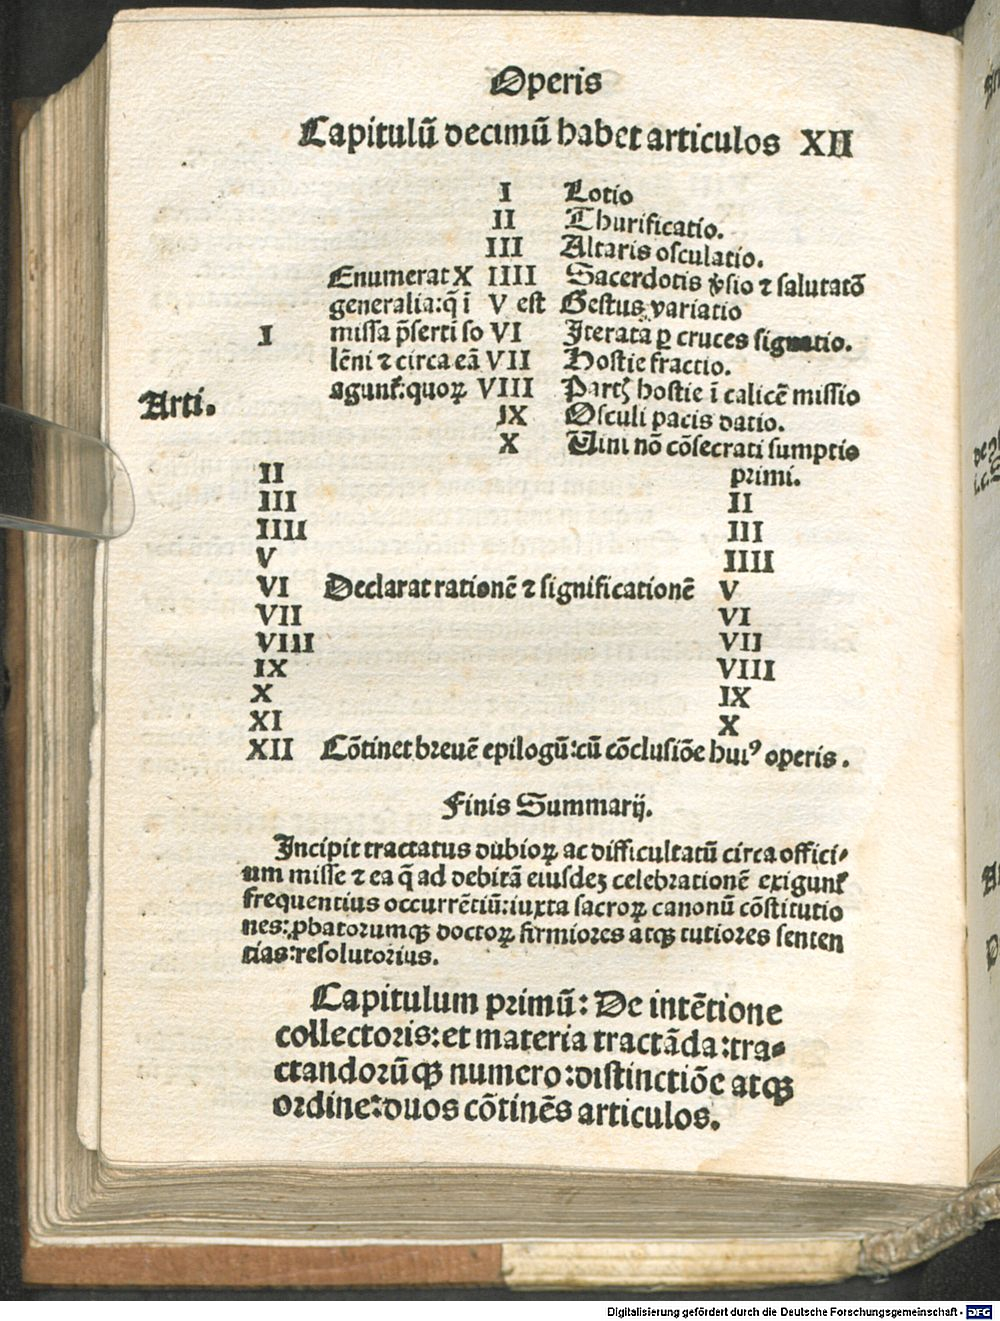 Operis
Capitulū decimū habet articulos XII
I Lotio
II Thurificatio.
III Altaris osculatio.
Enumerat X IIII Sacerdotis v̓sio ⁊ salutatō
generalia:q̄ ī V est Gestus variatio
I missa p̄serti so VI Iterata ꝑ cruces signatio.
lēni ⁊ circa eā VII Hostie fractio.
Arti. agunt̉:quoꝝ VIII Partꝭ hostie ī calicē missio
IX Osculi pacis datio.
X Uini nō cōsecrati sumptio
II primi.
III II
IIII III
V IIII
VI Declarat rationē ⁊ significationē V
VII VI
VIII VII
IX VIII
X IX
XI X
XII Cōtinet breuē epilogū:cū cōclusiōe huiꝰ operis.
Finis Summarij.
Incipit tractatus dubioꝝ ac difficultatū circa offici/
um misse ⁊ ea q̄ ad debitā eiusdeꝫ celebrationē exigunt̉
frequentius occurrētiū:iuxta sacroꝝ canonū cōstitutio
nes:ꝓbatorumqꝫ doctoꝝ firmiores atqꝫ tutiores senten
tias:resolutorius.
Capitulum primū: De intētione
collectoris:et materia tractāda:tra-
ctandorūqꝫ numero:distinctiōe atqꝫ
ordine:duos cōtinēs articulos.
Digitalisierung gefördert durch die Deutsche Forschungsgemeinschaft - DFG